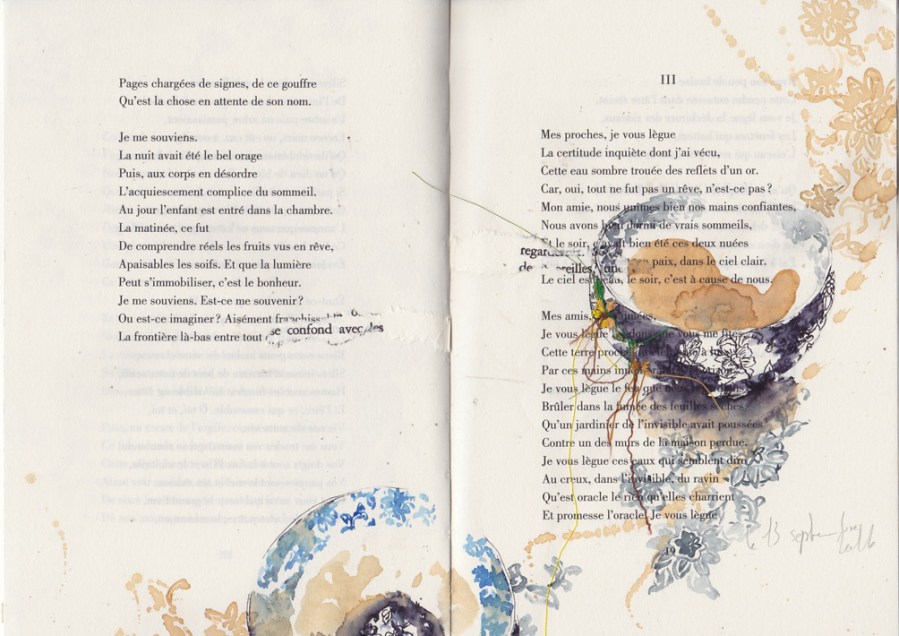 Pages chargées de signes, de ce gouffre
Qu'est la chose en attente de son nom.
Je me souviens.
La nuit avait été le bel orage
Puis, aux corps en désordre
L'acquiescement complice du sommeil.
Au jour l'enfant est entré dans la chambre.
La matinée, ce fut
De comprendre réels les fruits vus en rêve,
Apaisables les soifs. Et que la lumière
Peut s'immobiliser, c'est le bonheur.
Je me souviens. Est-ce me souvenir ?
Ou est-ce imaginer ? Aisément
La frontière là-bas entre tout
se confond avec les
III
Mes proches, je vous lègue
La certitude inquiète dont j'ai vécu,
Cette eau sombre trouée des reflets d'un or.
Car, oui, tout ne fut pas un rêve, n'est-ce pas ?
Mon amie, nous unîmes bien nos mains confiantes,
Nous avons bien dormi de vrais sommeils,
Et le soir, ç'avait bien été ces deux nuées
paix, dans le ciel clair.
Le ciel est beau, le soir, c'est à cause de nous.
Mes amis,
Je vous lègue
Cette terre proche
Par ces mains
Je vous lègue le feu que
Brûler dans la fumée des feuilles sèches
Qu'un jardinier de l'invisible avait poussées
Contre un des murs de la maison perdue.
Je vous lègue ces eaux qui semblent dire
Au creux, dans l'invisible, du ravin
Qu'est oracle le rien qu'elles charrient
Et promesse l'oracle. Je vous lègue
19
le 13